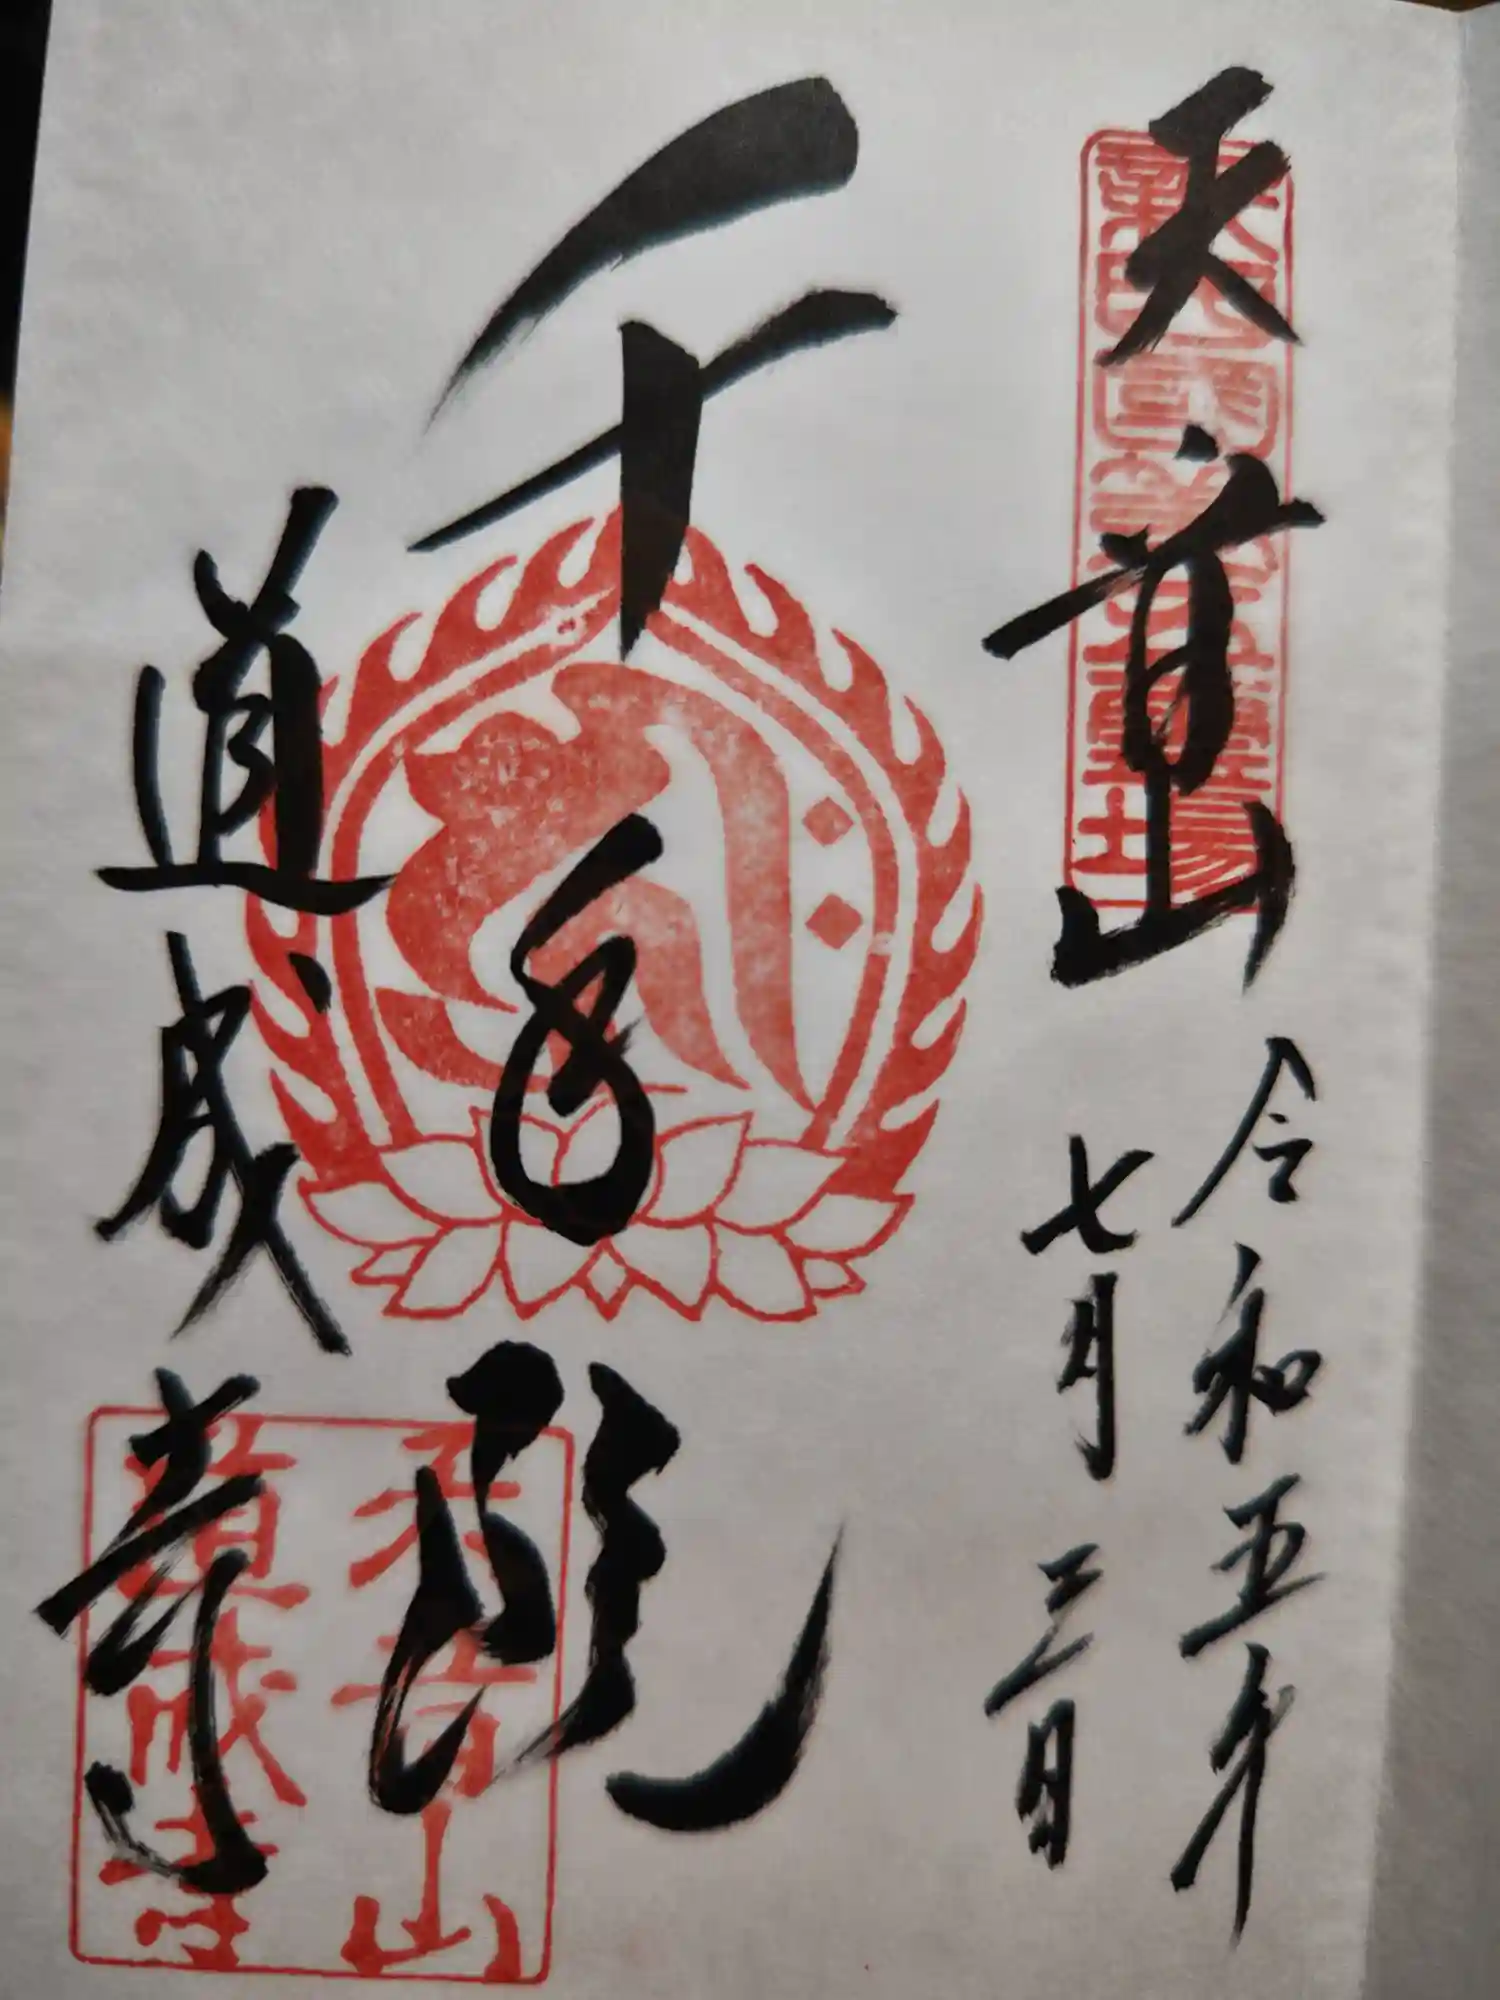 天音山
令和五年
七月三日
千手殿
道成寺
天音山
道成寺